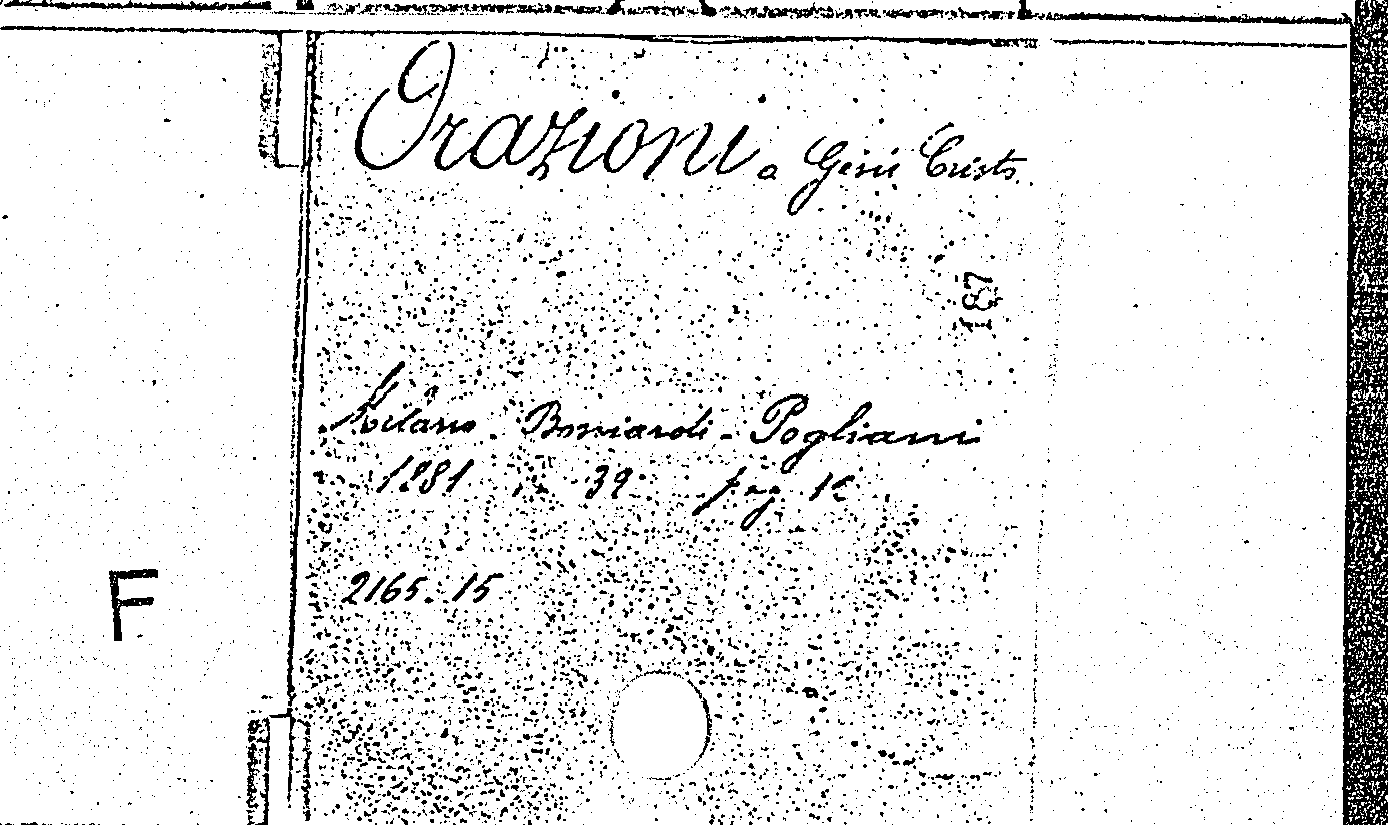 Orazioni a Gesù Cristo
187
Milano. Boniardi-Pogliani
1881 in 32º pag. 12
2165.15
F